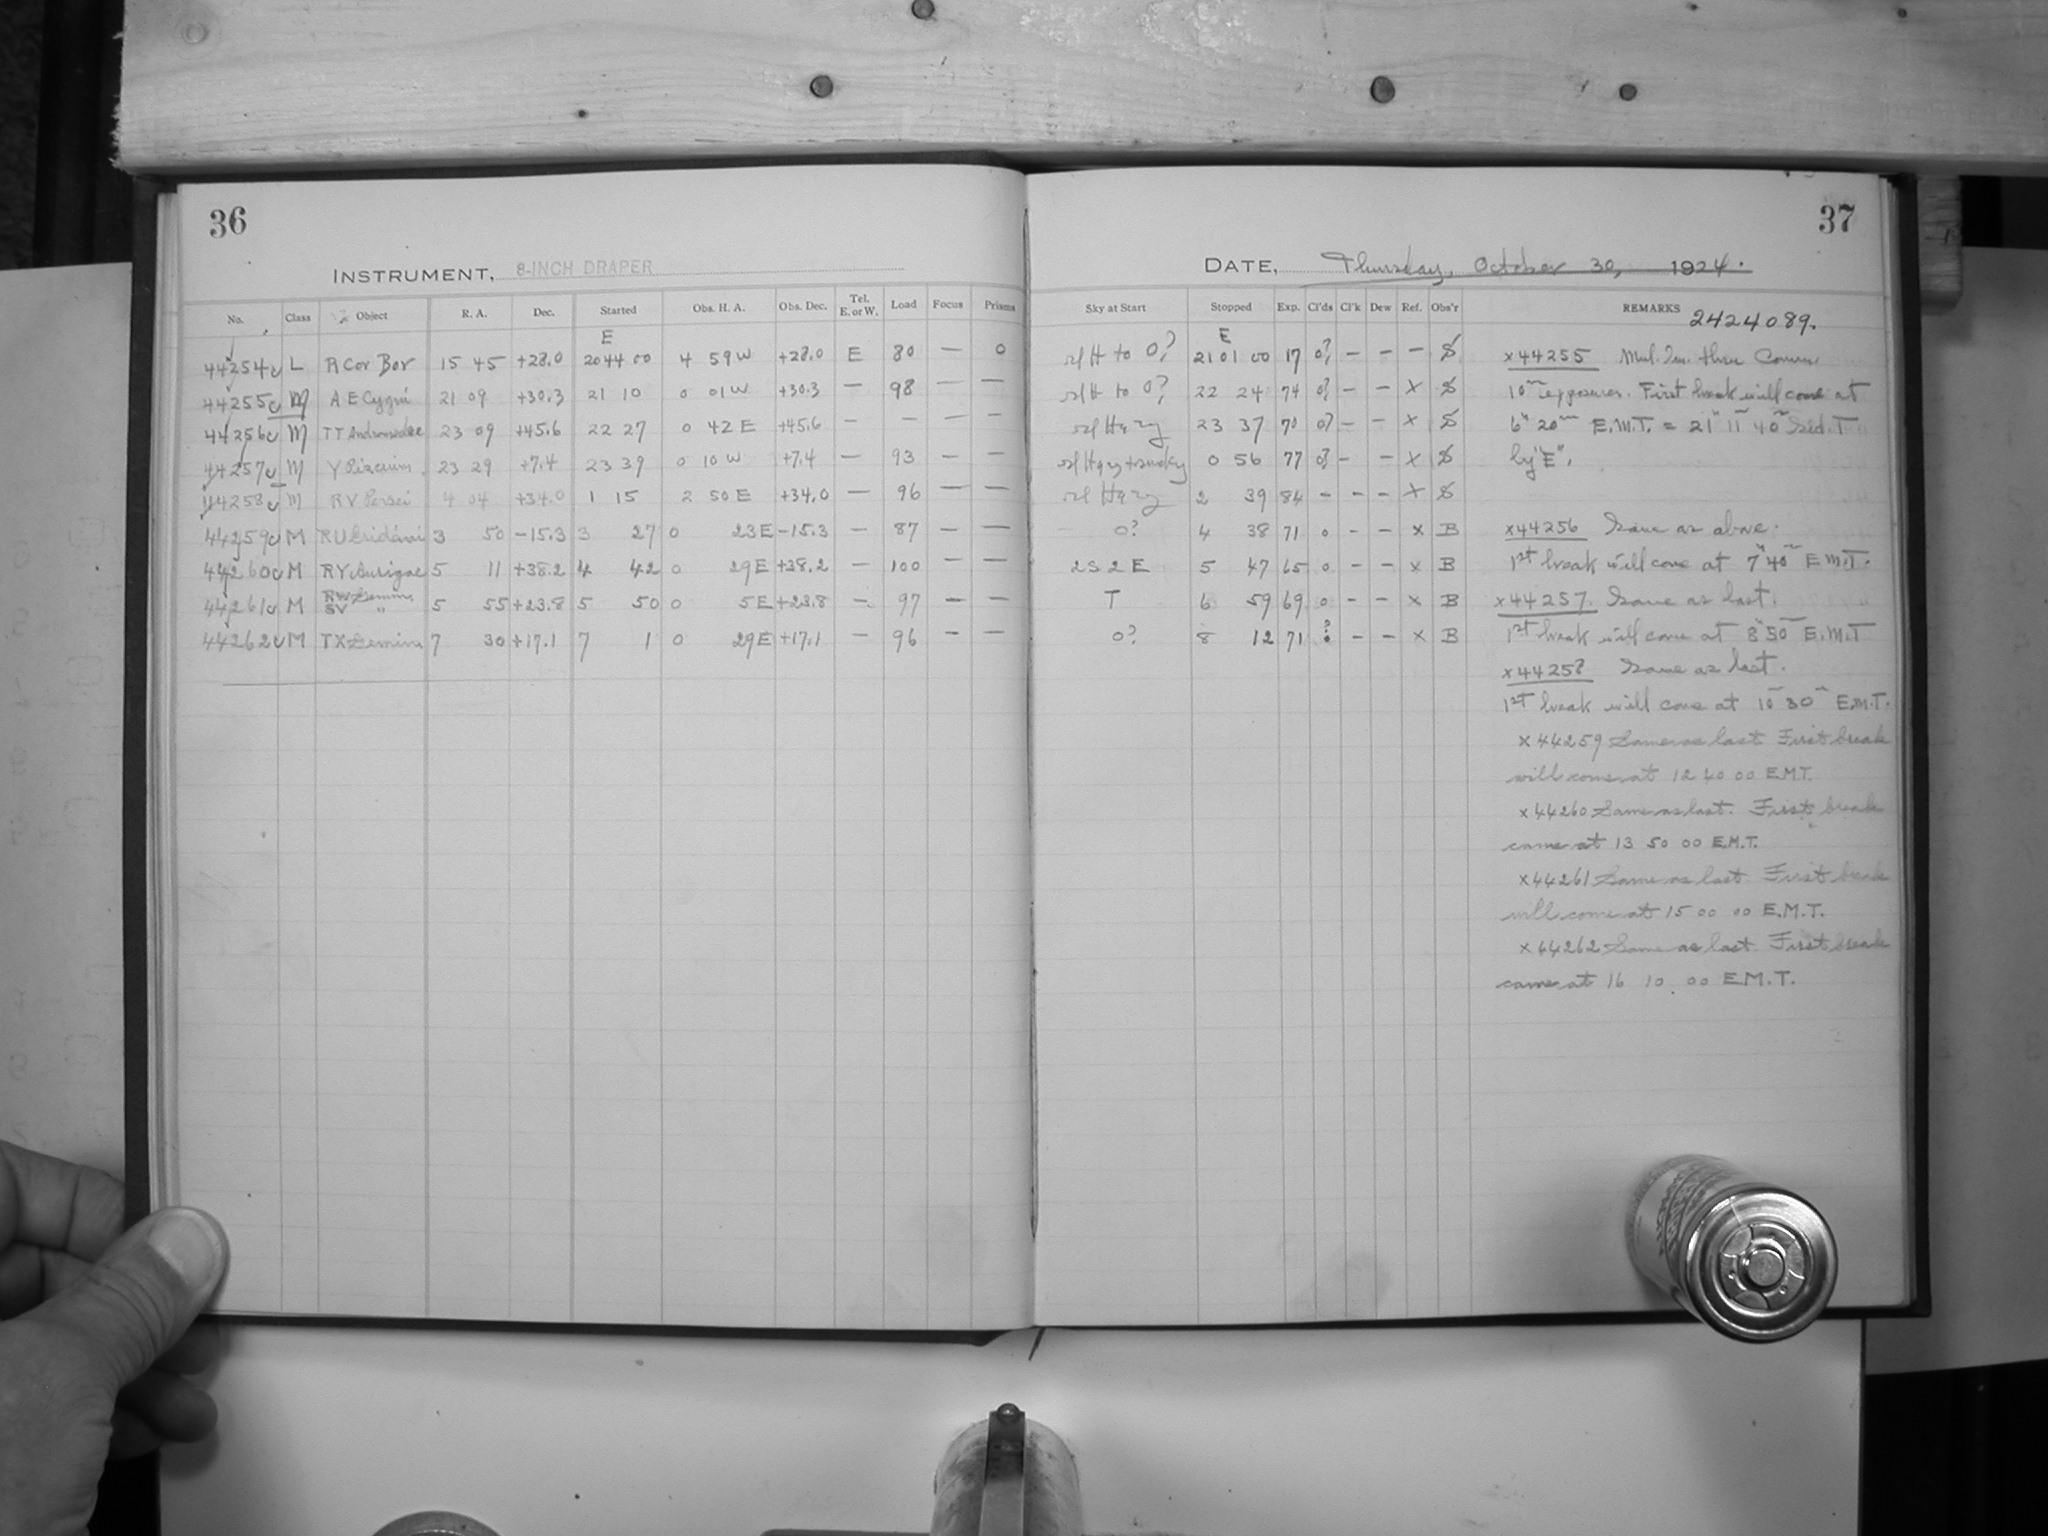 36
INSTRUMENT, 8-INCH DRAPER
No. Class Object R. A. Dec. Started Obs. H. A. Obs. Dec. Tel. E. or W. Load Focus Prisms
E
44254 L R Cor Bor 15 45 +28.0 20 44 00 4 59 W +28.0 E 80 — 0
44255 M A E Cygni 21 09 +30.3 21 10 0 01 W +30.3 — 98 — —
44256 M TT Andromedae 23 09 +45.6 22 27 0 42 E +45.6 — — — —
44257 M Y Piscium 23 29 +7.4 23 39 0 10 W +7.4 — 93 — —
44258 M RV Persei 4 04 +34.0 1 15 2 50 E +34.0 — 96 — —
44259 M RU Eridani 3 50 -15.3 3 27 0 23 E -15.3 — 87 — —
44260 M RY Aurigae 5 11 +38.2 4 42 0 29 E +38.2 — 100 — —
44261 M RW Gemin. SV " 5 55 +23.8 5 50 0 5 E +23.8 — 97 — —
44262 M TX Gemini 7 30 +17.1 7 1 0 29 E +17.1 — 96 — —
37
DATE, Thursday, October 30, 1924.
Sky at Start Stopped Exp. Cl'ds Cl'k Dew Ref. Obs'r REMARKS
2424089.
E
to 0? 21 01 00 17 0? — — — S
to 0? 22 24 74 0? — — x S
23 37 70 0? — — x S
0 56 77 0? — — x S
2 39 84 — — — x S
0? 4 38 71 0 — — x B
2 S 2 E 5 47 65 0 — — x B
T 6 59 69 0 — — x B
0? 8 12 71 ? — — x B
x44255 three
10m exposures. First break will come at
6h 20m E.M.T. = 21h 11m 40s Sid. T
by "E".
x44256 Same as above.
1st break will come at 7h 40m E.M.T.
x44257. Same as last.
1st break will come at 8h 50m E.M.T
x44258 Same as last.
1st break will come at 10 30 E.M.T.
x44259 Same as last First break
will come at 12 40 00 E.M.T.
x44260 Same as last. First break
came at 13 50 00 E.M.T.
x44261 Same as last First break
will come at 15 00 00 E.M.T.
x44262 Same as last First break
came at 16 10 00 E.M.T.